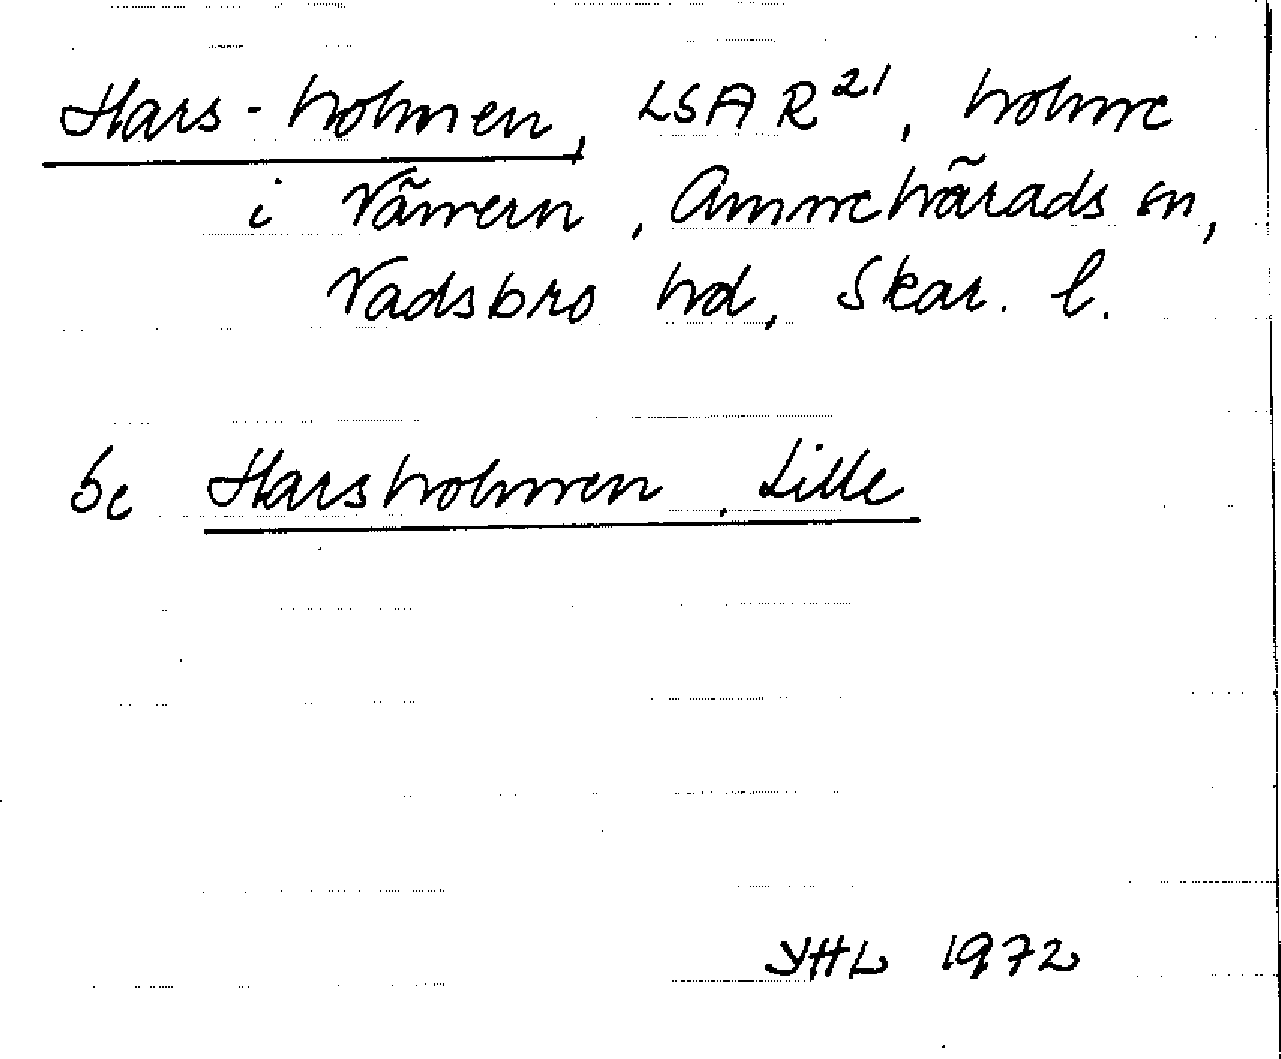 Hars-holmen, LSA R21, holme
i Vänern, Amnehärads sn,
Vadsbro hd, Skar. l.
se Harsholmen, Lille
YHL 1972